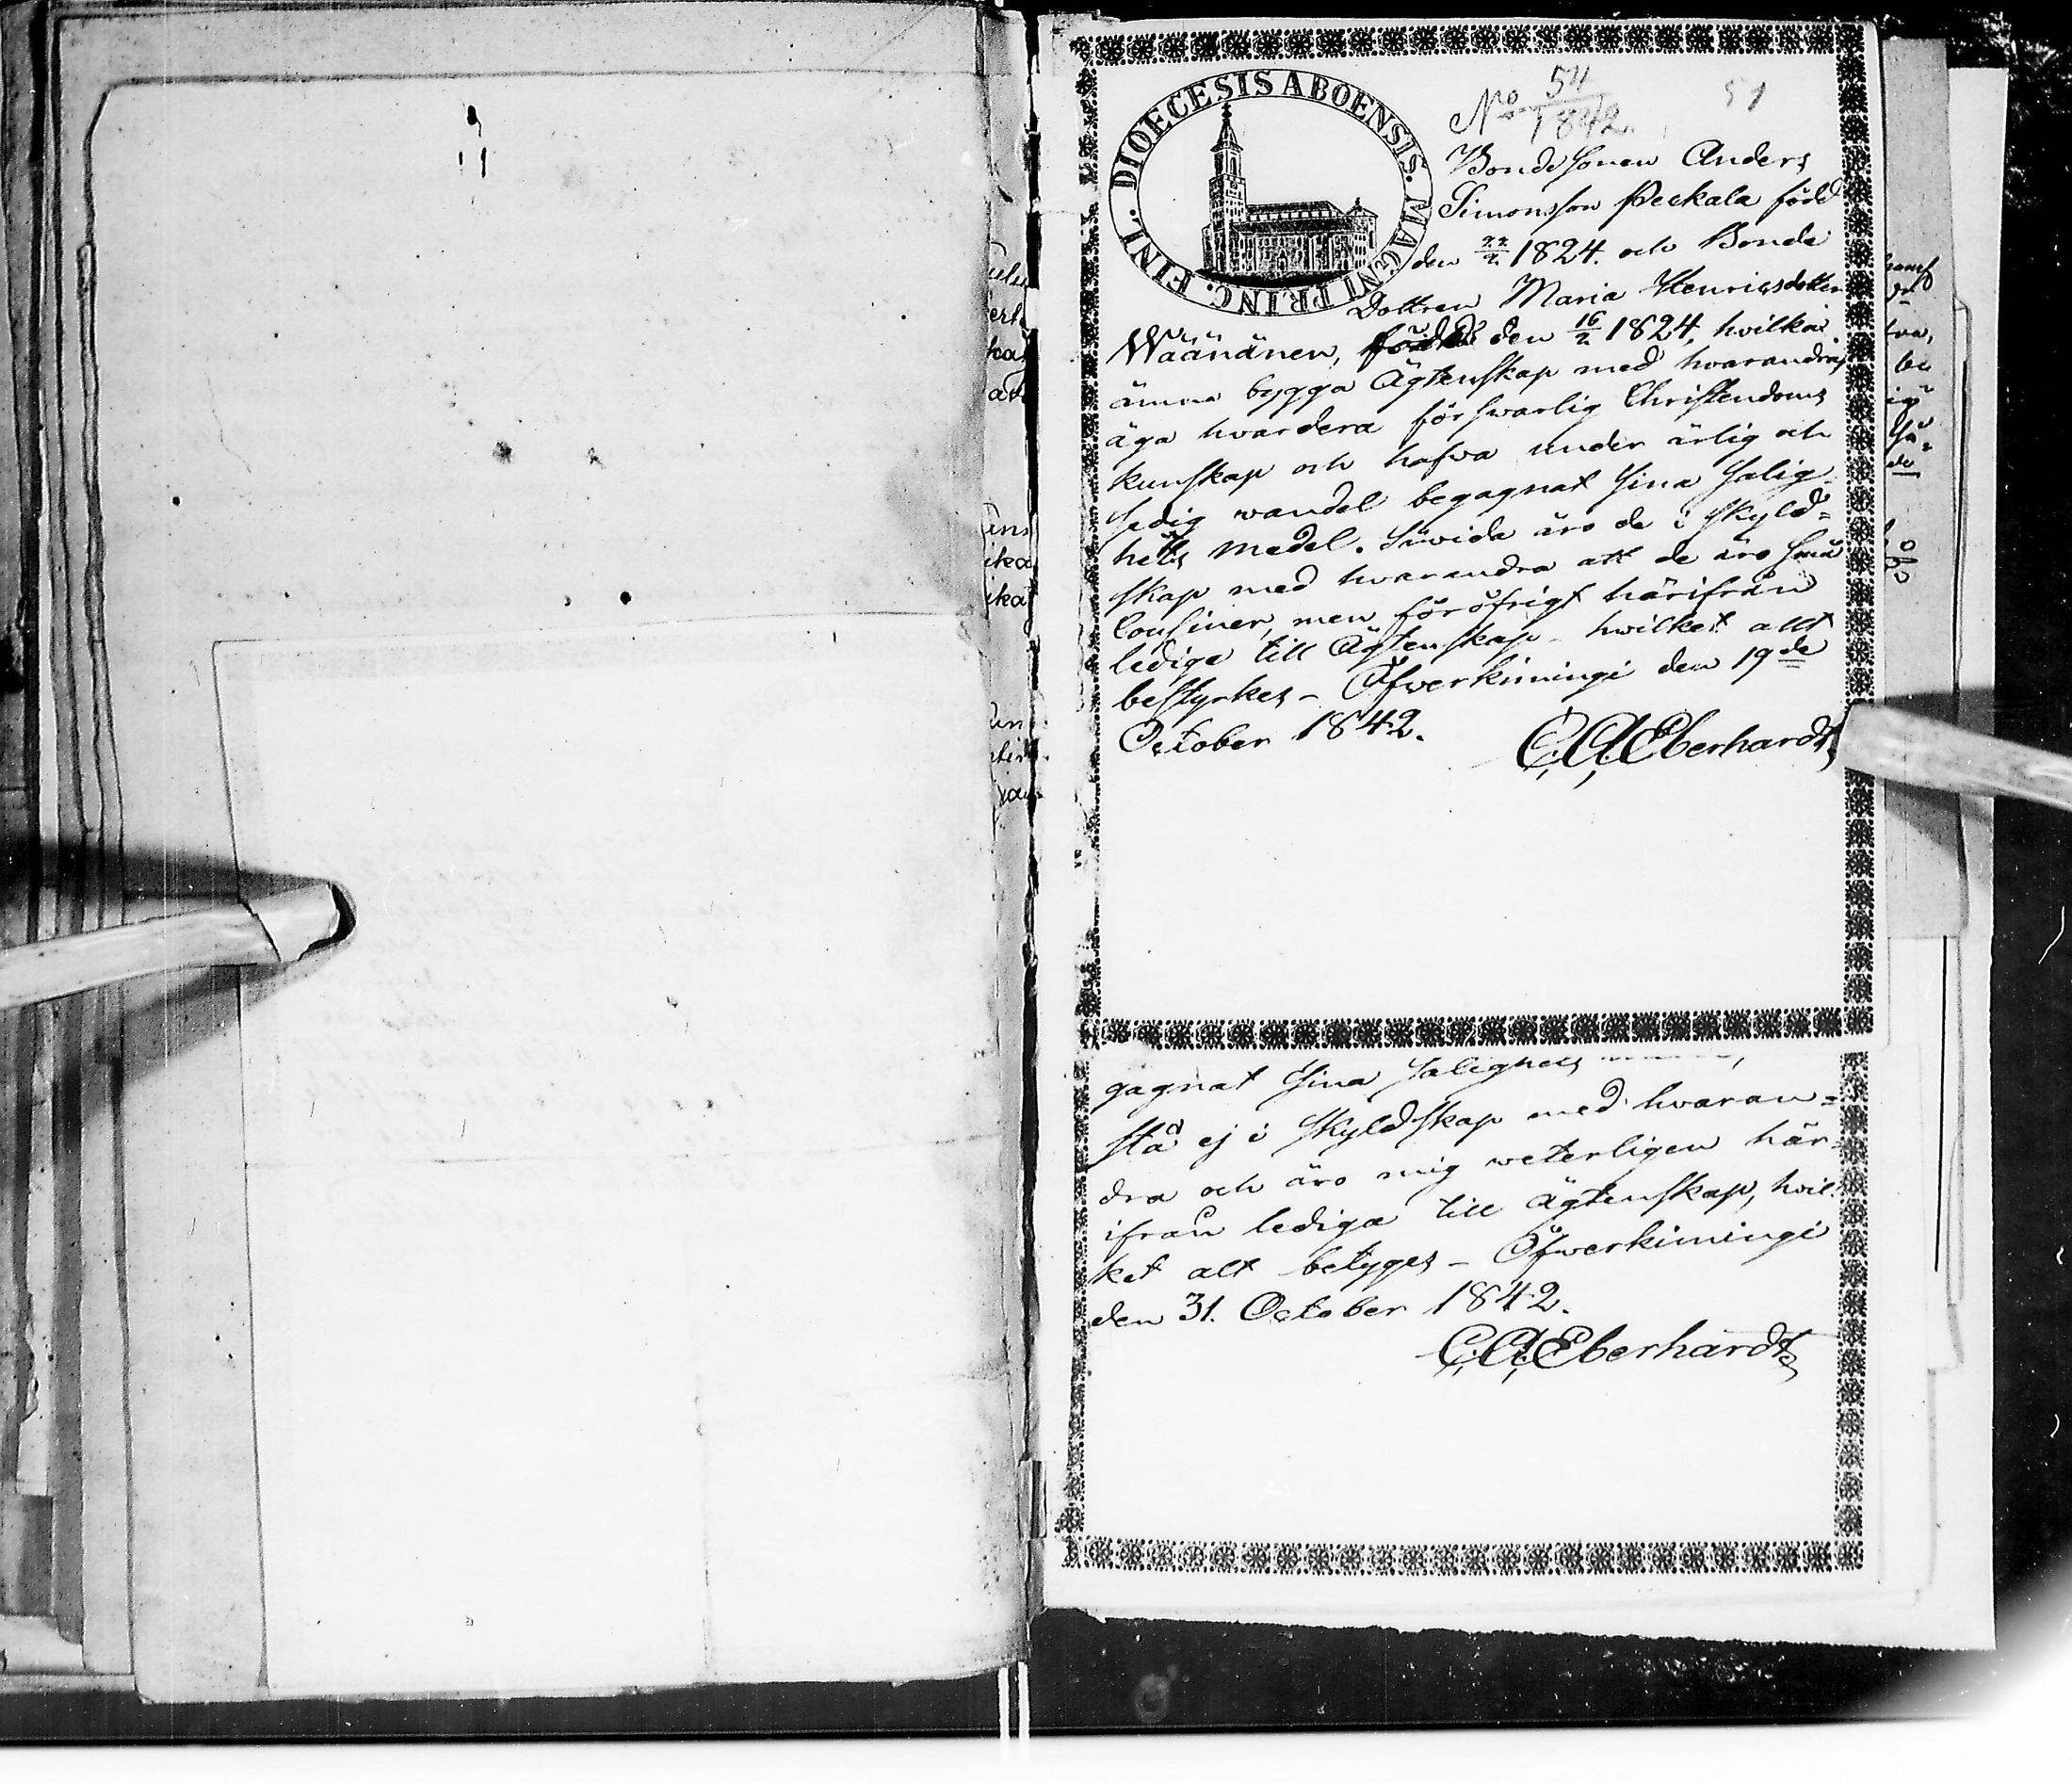 DIOECESIS ABOENSIS. MAGNI PRINC. FINL.
No 54
1842.
51
Bondesonen Anders
Simonsson Peckala född
den 22/2 1824. och Bonde
Dottren Maria Henricsdotter
Wäänänen, född den 16/2 1824, hvilka
ämna bygga Ägtenskap med hvarandra,
äga hvardera försvarlig Christendoms
kunskap och hafva under ärlig och
sedig wandel begagnat sina salig-
hets medel. Såvida äro de i skyld=
skap med hvarandra att de äro små
Cousiner, men föröfrigt härifrån
lediga till Ägtenskap - hvilket allt
bestyrkes - Öfwerkimingi den 19de
October 1842.
C. A. Eberhardt
gagnat sina salighets
stå ej i skyldskap med hvaran=
dra och äro mig weterligen här-
ifrån lediga till ägtenskap, hvil-
ket alt betyges - Öfwerkimingi
den 31. October 1842.
C. A. Eberhardt